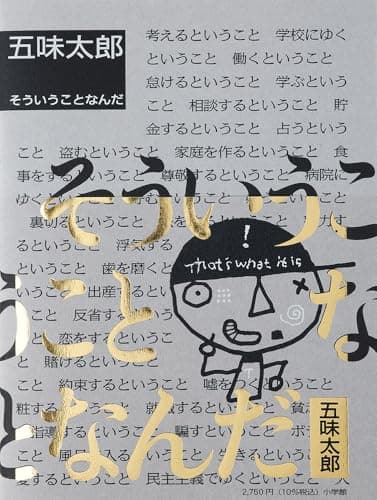 五味太郎
そういうことなんだ
考えるということ　学校にゆく
ということ　働くということ
怠けるということ　学ぶという
こと　相談するということ　貯
金するということ　占うという
こと　盗むということ　家庭を作るということ　食
事をするということ　尊敬するということ　病院に
ゆく
裏切るということ
するということ　浮気する
ということ　歯を磨くと
出産すると
反省する
恋をする
賭けるということ
こと　約束するということ　嘘をつくということ
粧する
指導するということ　騙すということ
風呂
生きるということ
愛するということ　民主主義でゆくということ
そういうこ
とな
うこと　な
となんだ
!
That's what it is
T
五味太郎
2,750円（10%税込）小学館